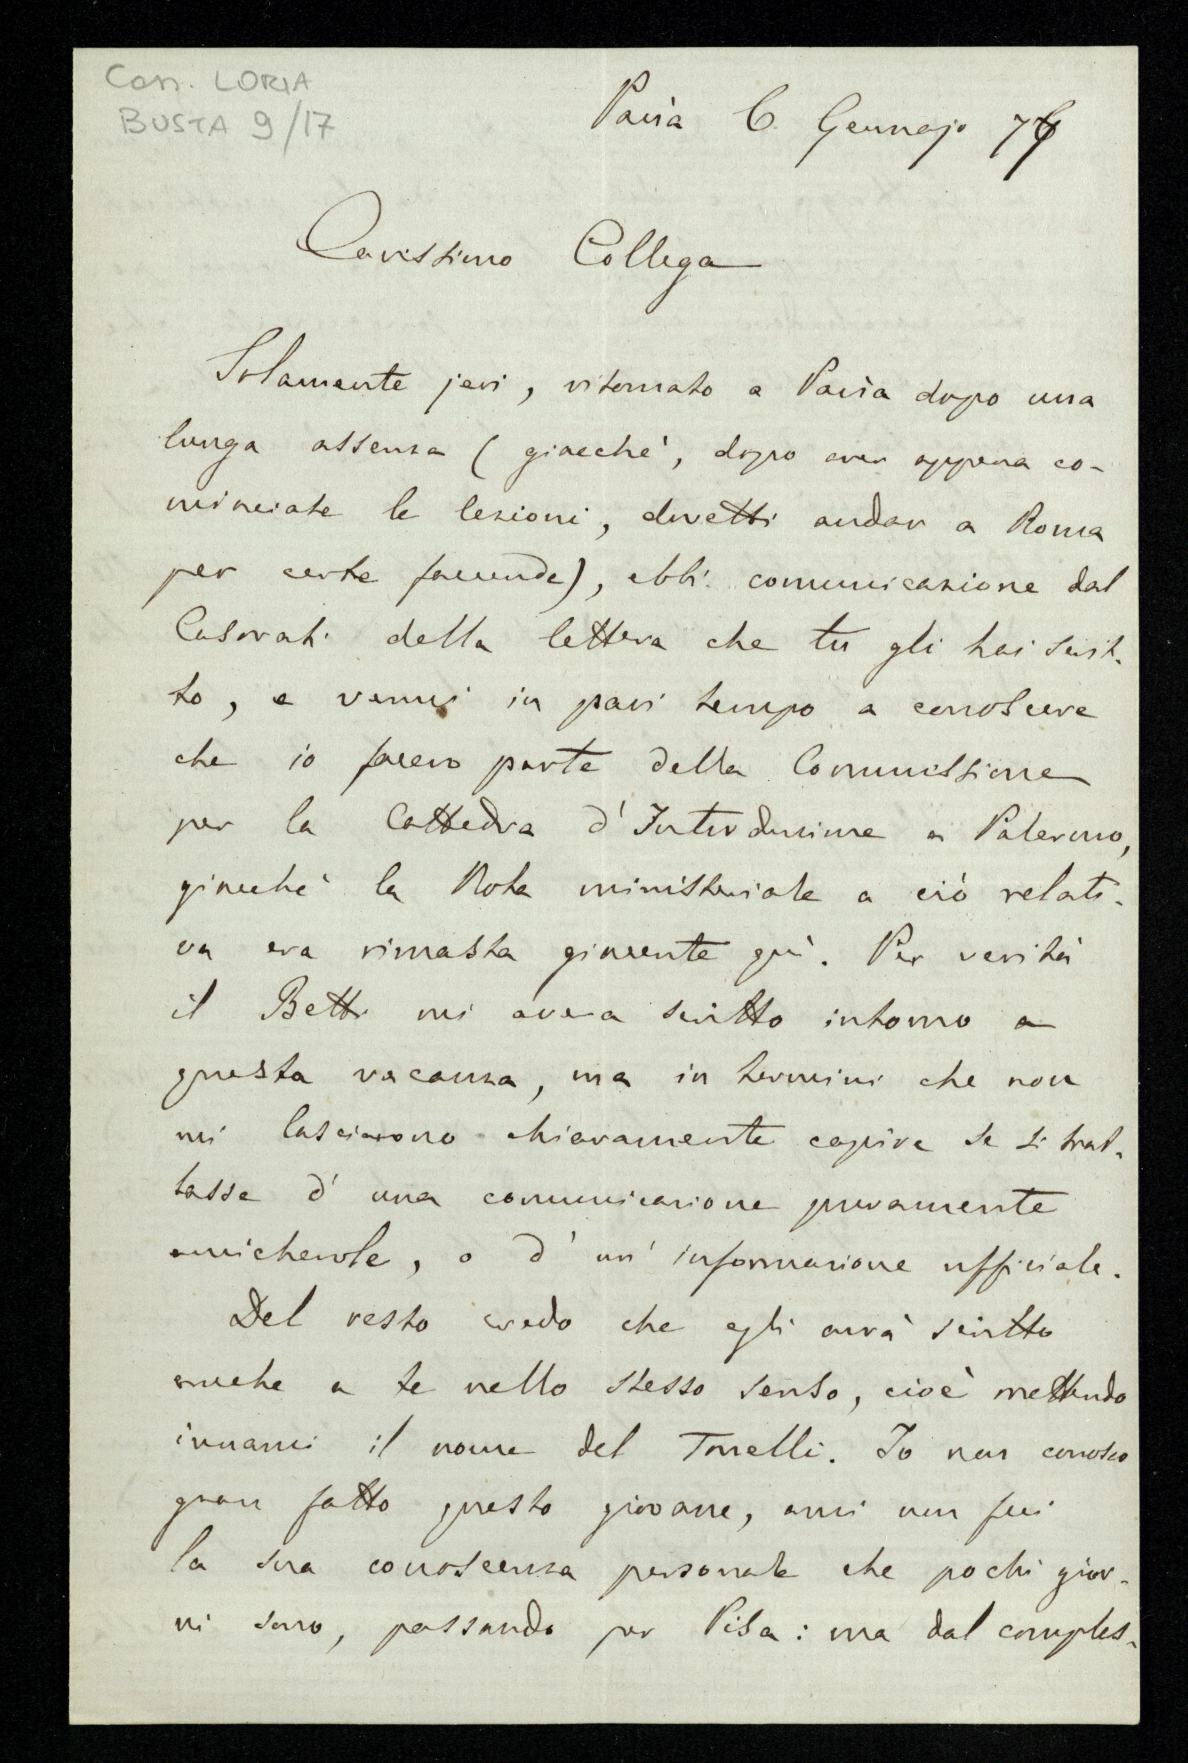 Corr. LORIA
BUSTA 9/17
Pavia 6 Gennajo 77
Carissimo Collega
Solamente jeri, ritornato a Pavia dopo una
lunga assenza (giacchè, dopo aver appena co-
minciate le lezioni, dovetti andar a Roma
per certe faccende), ebbi comunicazione dal
Casorati della lettera che tu gli hai scrit-
to, e venni in pari tempo a conoscere
che io facevo parte della Commissione
per la Cattedra d'Introduzione a Palermo,
giacchè la Nota ministeriale a ciò relati-
va era rimasta giacente quì. Per verità
il Betti mi aveva scritto intorno a
questa vacanza, ma in termini che non
mi lasciarono chiaramente capire se si trat-
tasse d'una comunicazione puramente
amichevole, o d'un'informazione ufficiale.
Del resto credo che egli avrà scritto
anche a te nello stesso senso, cioè mettendo
innanzi il nome del Tonelli. Io non conosco
gran fatto questo giovane, anzi non feci
la sua conoscenza personale che pochi gior-
ni sono, passando per Pisa: ma dal comples-